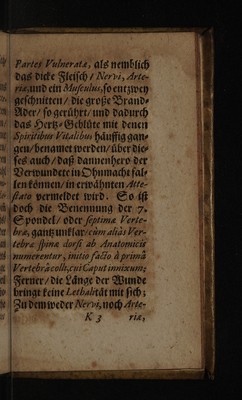 Partes Vulneratæ, als nemblich
das dicke Fleisch / Nervi, Arte-
riæ, und ein Musculus, so entzwey
geschnitten / die große Brand-
Ader / so gerührt / und dadurch
das Hertz-Geblüte mit denen
Spiritibus Vitalibus häuffig gan-
gen / benamet werden / über die-
ses auch / daß dannenhero der
Verwundete in Ohnmacht fal-
len können / in erwähnten Atte-
stato vermeldet wird. So ist
doch die Benennung der 7.
Spondel / oder septimæ Verte-
bræ, gantz unklar: cùm aliàs Ver-
tebræ spinæ dorsi ab Anatomicis
numerentur, initio facto à primâ
Vertebrâ colli, cui Caput innixum;
Ferner / die Länge der Wunde
bringt keine Lethalität mit sich;
Zu dem weder Nervi, noch Arte-
K 3 riæ,